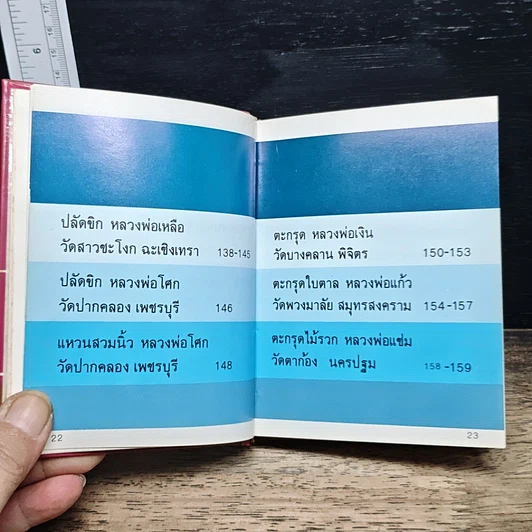 ปลัดขิก หลวงพ่อเหลือ
วัดสาวชะโงก ฉะเชิงเทรา 138-145
ปลัดขิก หลวงพ่อโศก
วัดปากคลอง เพชรบุรี 146
แหวนสวมนิ้ว หลวงพ่อโศก
วัดปากคลอง เพชรบุรี 148
22
ตะกรุด หลวงพ่อเงิน
วัดบางคลาน พิจิตร 150-153
ตะกรุดใบตาล หลวงพ่อแก้ว
วัดพวงมาลัย สมุทรสงคราม 154-157
ตะกรุดไม้รวก หลวงพ่อแช่ม
วัดตาก้อง นครปฐม 158-159
23
6
15
14